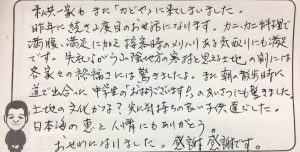 私共一家もまた「かどや」に来てしまいました。
昨年に続き2度目のお世話になります。カニ、カニ料理で
満腹、満足に加え接客時のメリハリある気配りにも満足
です。失礼ながら山陰地方の寒村と思う土地の割には
各家々の裕福さには驚きました。また朝の散歩時に
道で出合った中学生の「おはようございます!」のあいさつにも驚きました。
土地の文化かな? 実に気持ちの良い子供達でした。
日本海の恵と人情にもありがとう。
お世わになりました。感謝感謝です。